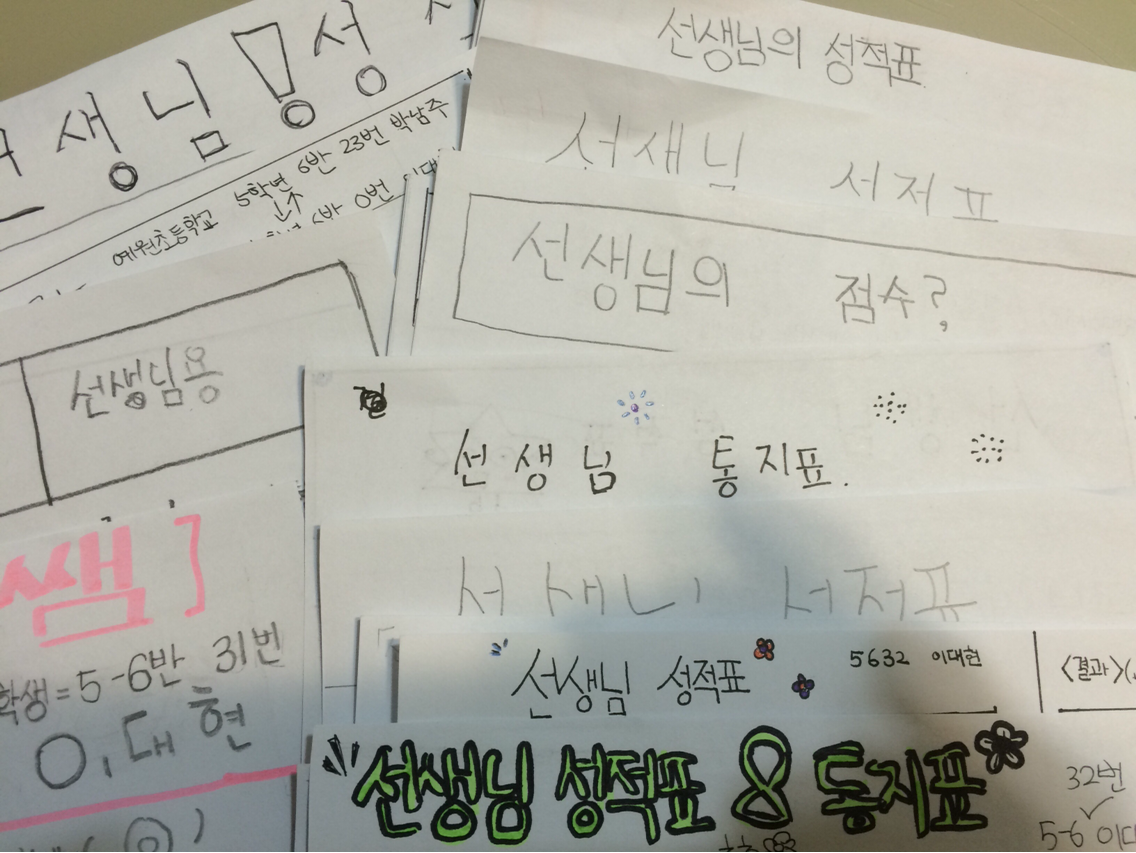 생님! 성
예원초등학교 5학년 6반 23번 박남주
0번
선생님의 성적표
선생님의 점수?
선생님용
선생님 통지표.
쌤]
학생=5-6반 31번
이대현
선생님 성적표
5632 이대현
<결과>
선생님 성적표 & 통지표
32번
5-6 이대